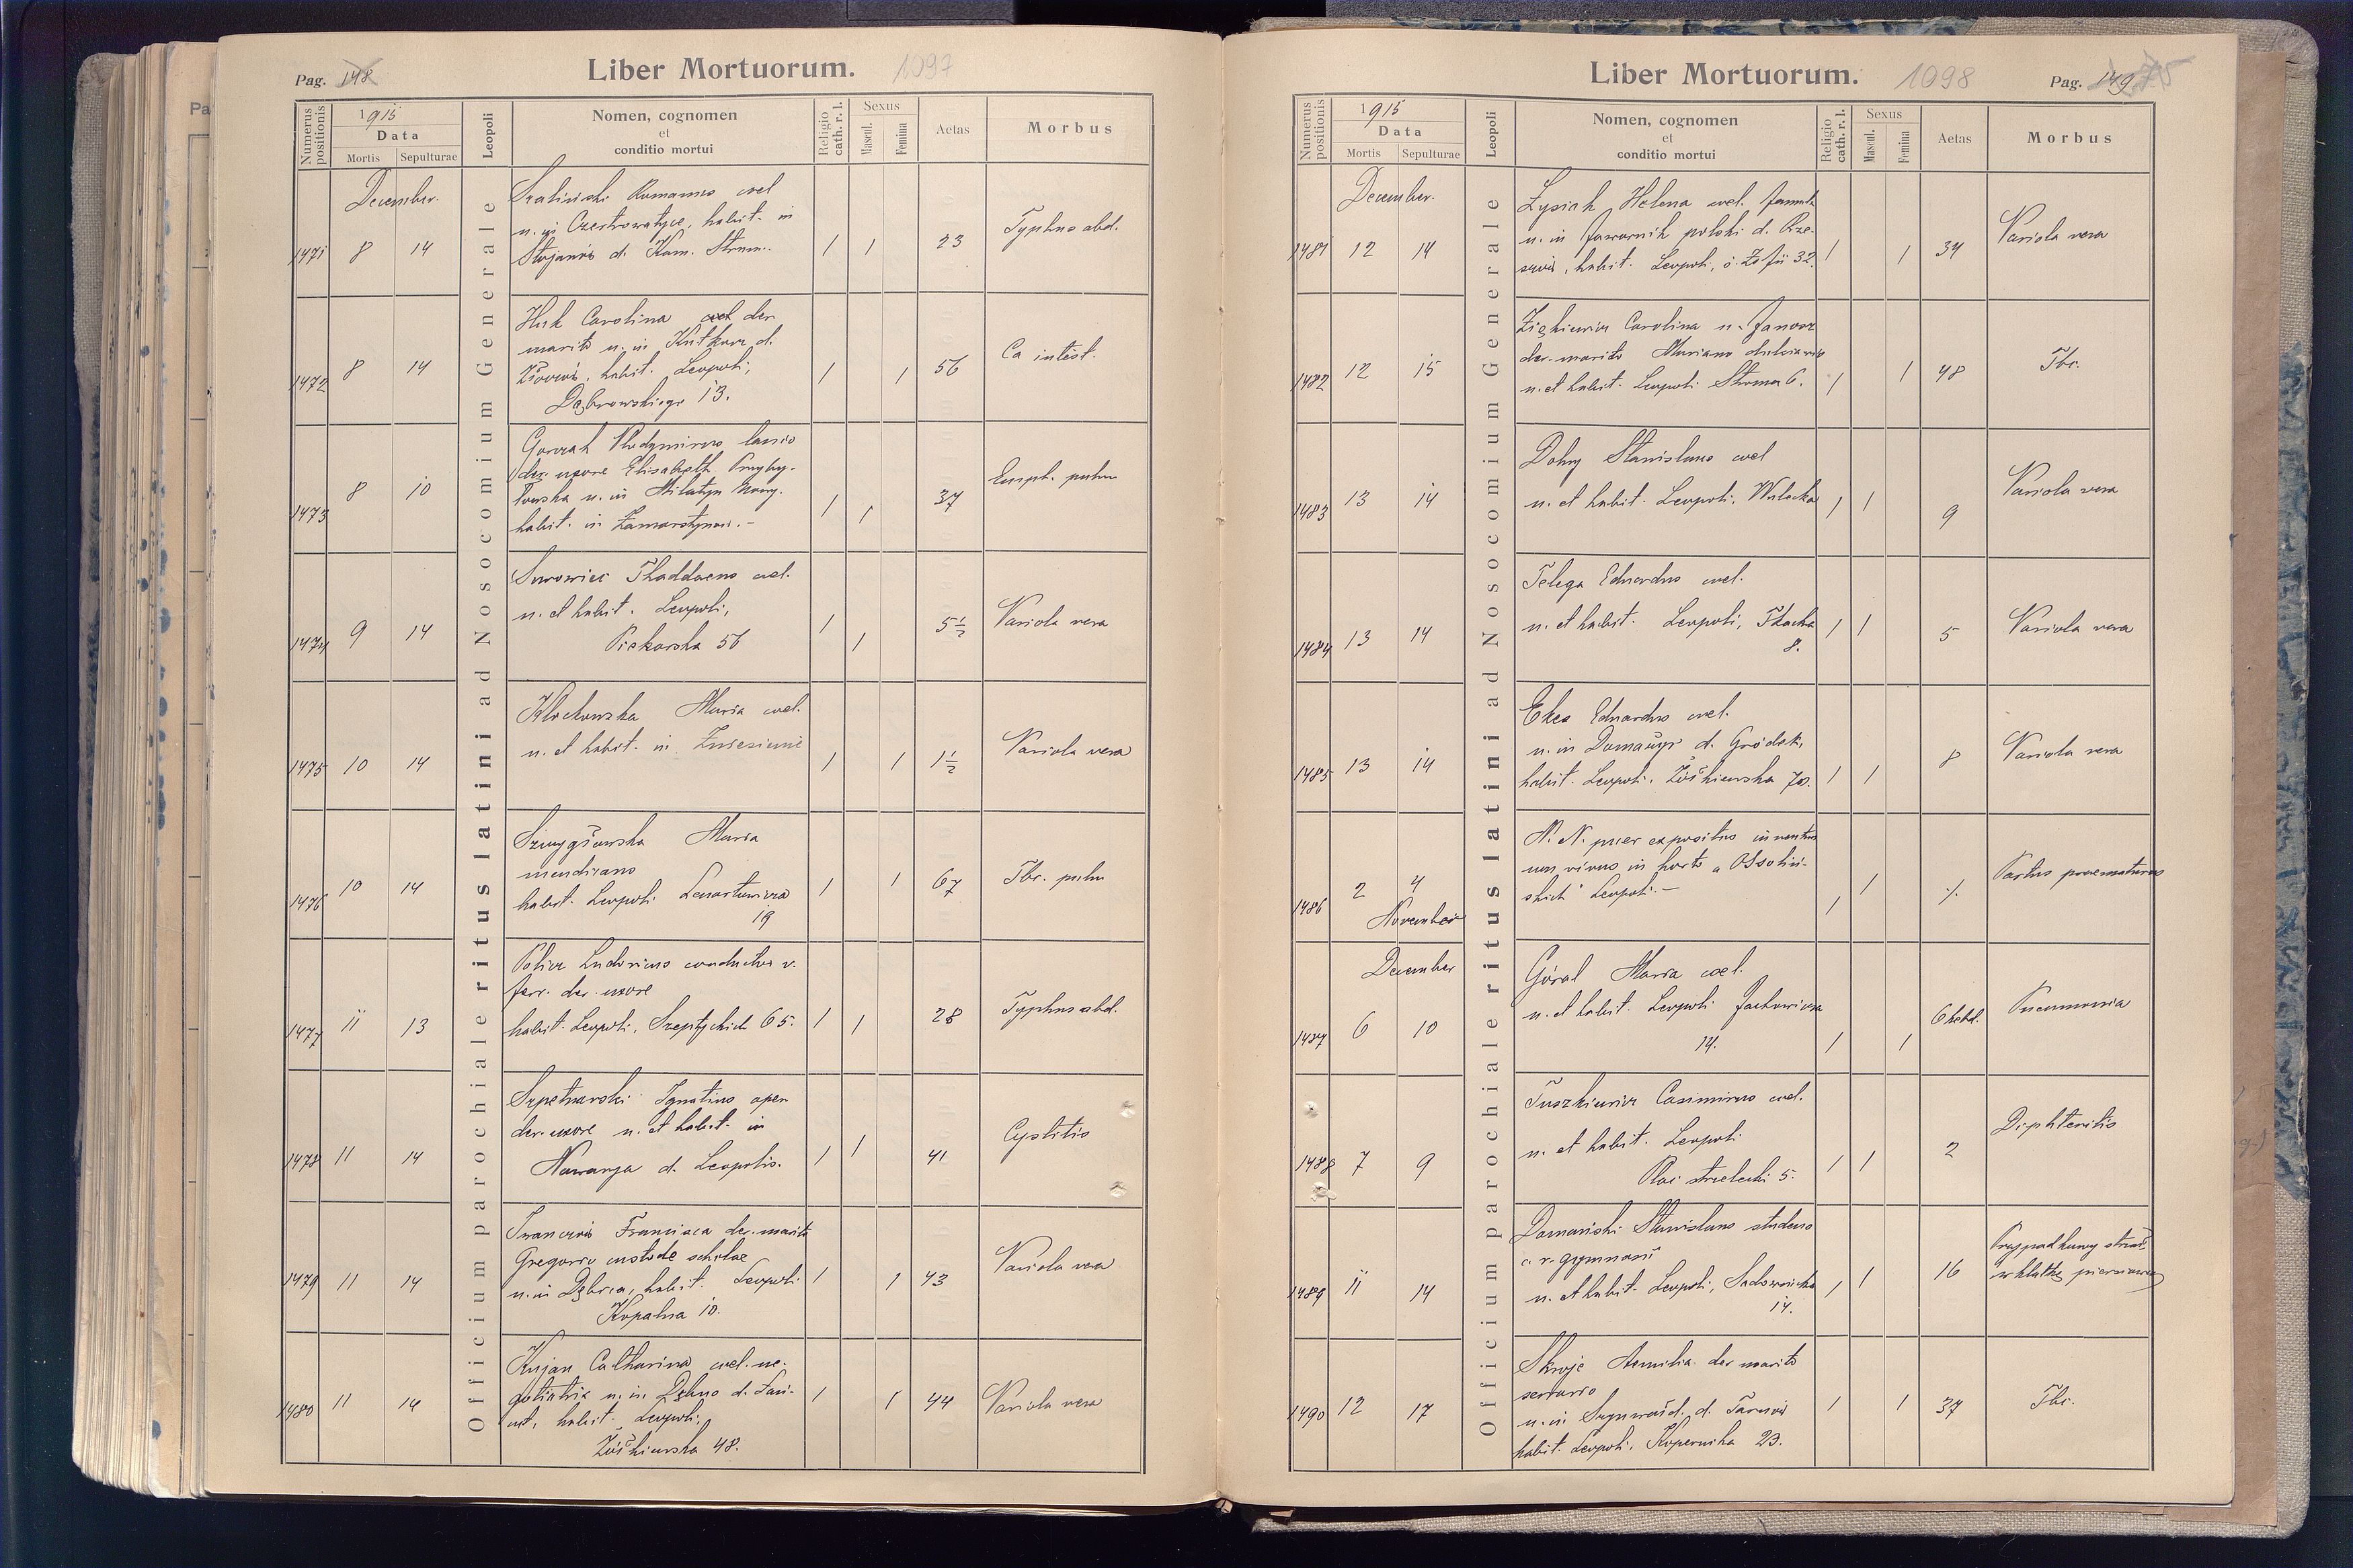 Pag. 148
Liber Mortuorum. 1097
Numerus positionis
1915
Data
Mortis Sepulturae
Leopoli
Nomen, cognomen
et
conditio mortui
Religio cath. r. l.
Sexus
Mascul. Femina
Aetas
Morbus
Officium parochiale ritus latini ad Nosocomium Generale
December.
Romanus cael
n. in habit. in
Stojanów d. Kam. Strum.
1471 8 14 1 1 23 Typhus abd.
Huk Carolina der
marito n. in Kutkorz d.
Złoczów, habit. Leopoli,
Dąbrowskiego 13.
1472 8 14 1 1 56 Ca intest.
lanio
der. uxore Elisabeth Przyby-
łowska n. in Milatyn Nowy.
habit. in Zamarstynów. -
1473 8 10 1 1 37 Emph. pulm
Surowiec Thaddaeus cael.
n. et habit. Leopoli,
Piekarska 56
1474 9 14 1 1 5½ Variola vera
Kłochowska Maria cael.
n. et habit. in Zniesienie
1475 10 14 1 1 1½ Variola vera
Maria
mendicans
habit. Leopoli Lenartowicza
19
1476 10 14 1 1 67 Tbc. pulm
Ludovicus conductor v.
ferr. der. uxore
habit. Leopoli, Szeptyckich 65.
1477 11 13 1 1 28 Typhus abd.
Szpetnarski Ignatius oper
der. uxore n. et habit. in
Nawarya d. Leopolis.
1478 11 14 1 1 41 Cystitis
Francisca der. marito
Gregorio custode scholae
n. in habit. Leopoli
Kopalna 10.
1479 11 14 1 1 43 Variola vera
Kujan Catharina cael. ne-
gotiatrix n. in d. Łań-
cut, habit. Leopoli,
Żółkiewska 48.
1480 11 14 1 1 44 Variola vera
Liber Mortuorum. 1098
Pag. 149
Numerus positionis
1915
Data
Mortis Sepulturae
Leopoli
Nomen, cognomen
et
conditio mortui
Religio cath. r. l.
Sexus
Mascul. Femina
Aetas
Morbus
Officium parochiale ritus latini ad Nosocomium Generale
December.
Łysiak Helena cael. famula
n. in Jawornik polski d. Rze-
szów, habit. Leopoli, ś. Zofii 32.
1481 12 14 1 1 34 Variola vera
Ziękiewicz Carolina n. Janosz
der. marito Mariano
n. et habit. Leopoli Stroma 6.
1482 12 15 1 1 48 Tbc.
Dolny Stanislaus cael
n. et habit. Leopoli, Wulecka
1483 13 14 1 1 9 Variola vera
Telega Eduardus cael.
n. et habit. Leopoli, Tkacka
8.
1484 13 14 1 1 5 Variola vera
Ekes Eduardus cael.
n. in Domażyr d. Gródek,
habit. Leopoli, Żółkiewska 70.
1485 13 14 1 1 8 Variola vera
N. N. puer expositus inventus
non vivus in horto "Ossoliń-
skich" Leopoli. -
1486 2 4 1 1 ·/. Partus praematurus
November
December
Góral Maria cael.
n. et habit. Leopoli Jachowicza
14.
1487 6 10 1 1 6 hebd. Pneumonia
Tuszkiewicz Casimirus cael.
n. et habit. Leopoli
Plac strzelecki 5.
1488 7 9 1 1 2 Diphteritis
Domański Stanislaus studens
c. r. gymnasii
n. et habit. Leopoli, Sadownicka
14.
1489 11 14 1 1 16 Przypadkowy strzał
w klatkę piersiową
Aemilia der marito
serrario
n. in d. Tarnów
habit. Leopoli, Kopernika 23.
1490 12 17 1 1 37 Tbc.